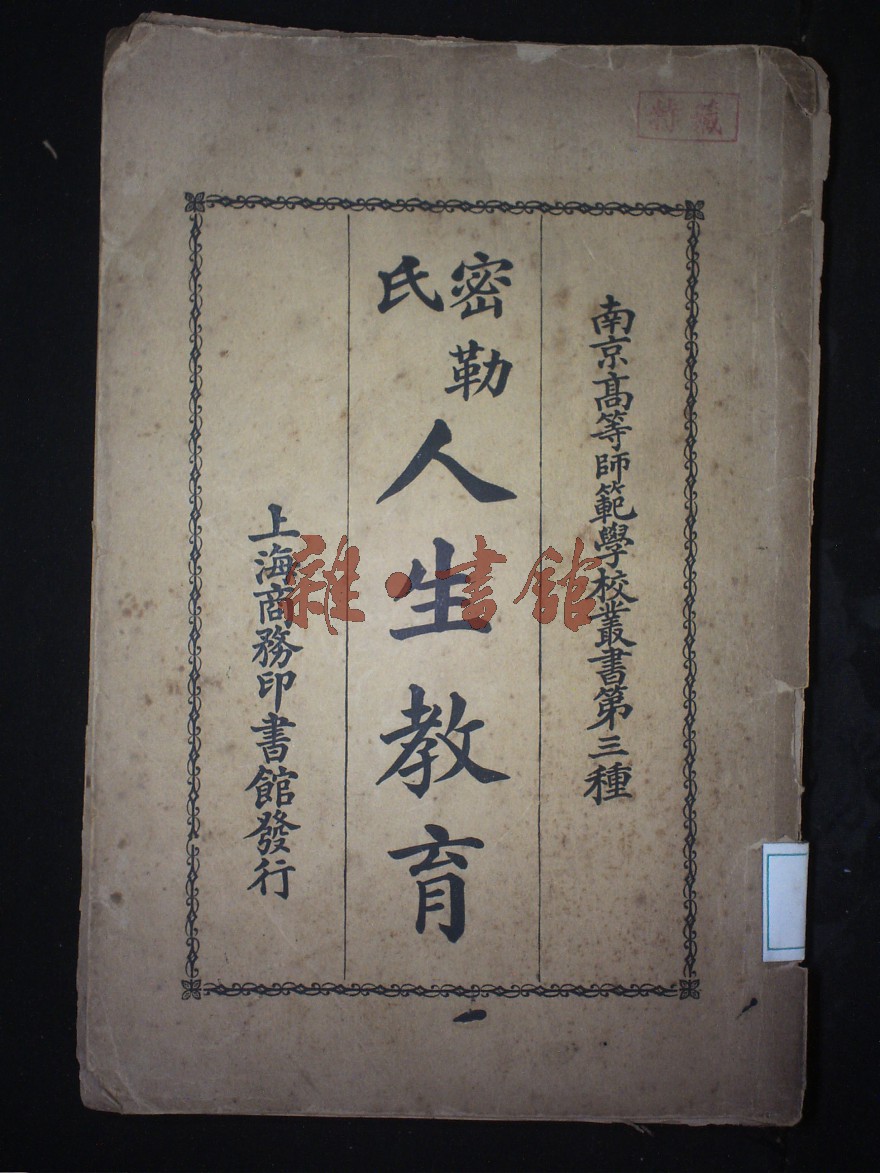 特藏
南京高等師範學校叢書第三種
密勒氏
人生教育
上海商務印書館發行
雜·書館